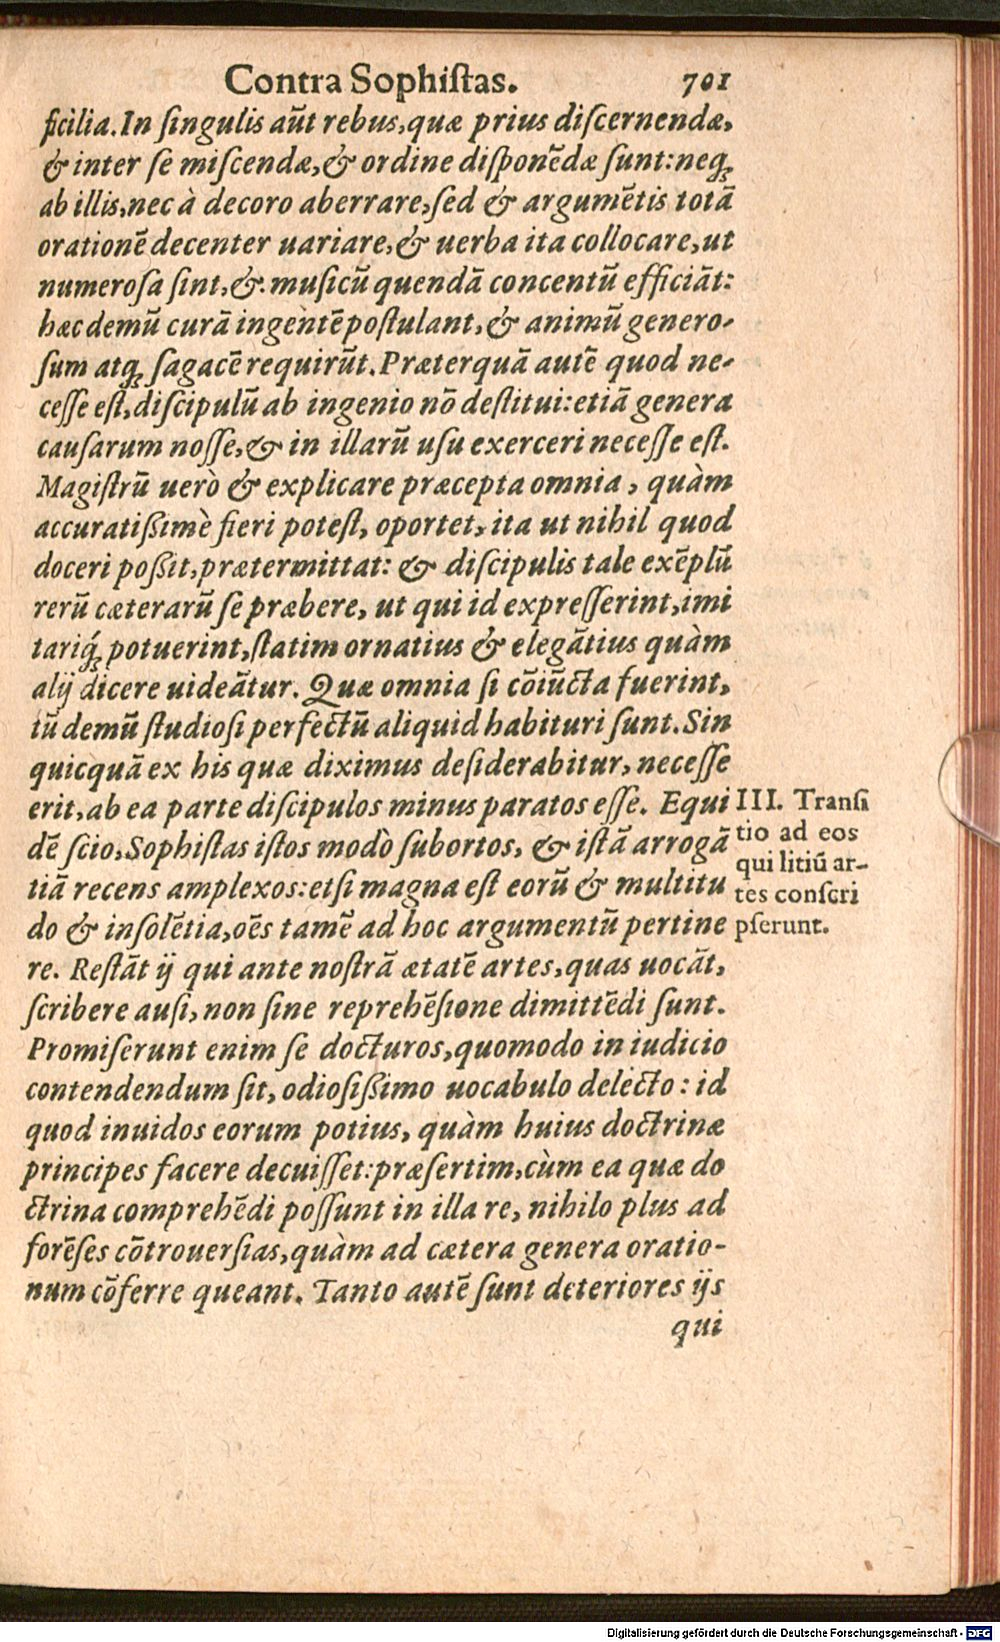 Contra Sophiſtas. 701
ficilia. In ſingulis aūt rebus, quæ prius diſcernendæ,
& inter ſe miſcendæ, & ordine diſponēdæ ſunt: neq;
ab illis, nec à decoro aberrare, ſed & argumētis totā
orationē decenter uariare, & uerba ita collocare, ut
numeroſa ſint, & muſicū quendā concentū efficiāt:
hæc demū curā ingentē poſtulant, & animū genero-
ſum atq; ſagacē requirūt. Præterquā autē quod ne-
ceſſe eſt, diſcipulū ab ingenio nō deſtitui: etiā genera
cauſarum noſſe, & in illarū uſu exerceri neceſſe eſt.
Magiſtrū uerò & explicare præcepta omnia, quàm
accuratißimè fieri poteſt, oportet, ita ut nihil quod
doceri poßit, prætermittat: & diſcipulis tale exēplū
rerū cæterarū ſe præbere, ut qui id expreſſerint, imi
tariq́; potuerint, ſtatim ornatius & elegātius quàm
alij dicere uideātur. Quæ omnia ſi cōiūcta fuerint,
tū demū ſtudioſi perfectū aliquid habituri ſunt. Sin
quicquā ex his quæ diximus deſiderabitur, neceſſe
erit, ab ea parte diſcipulos minus paratos eſſe. Equi
dē ſcio, Sophiſtas iſtos modò ſubortos, & iſtā arrogā
tiā recens amplexos: etſi magna eſt eorū & multitu
do & inſolētia, oēs tamē ad hoc argumentū pertine
re. Reſtāt ij qui ante noſtrā ætatē artes, quas uocāt,
ſcribere auſi, non ſine reprehēſione dimittēdi ſunt.
Promiſerunt enim ſe docturos, quomodo in iudicio
contendendum ſit, odioſißimo uocabulo delecto: id
quod inuidos eorum potius, quàm huius doctrinæ
principes facere decuiſſet: præſertim, cùm ea quæ do
ctrina comprehēdi poſſunt in illa re, nihilo plus ad
forēſes cōtrouerſias, quàm ad cætera genera oratio-
num cōferre queant. Tanto autē ſunt deteriores ijs
qui
III. Tranſi
tio ad eos
qui litiū ar-
tes conſcri
pſerunt.
Digitalisierung gefördert durch die Deutsche Forschungsgemeinschaft - DFG